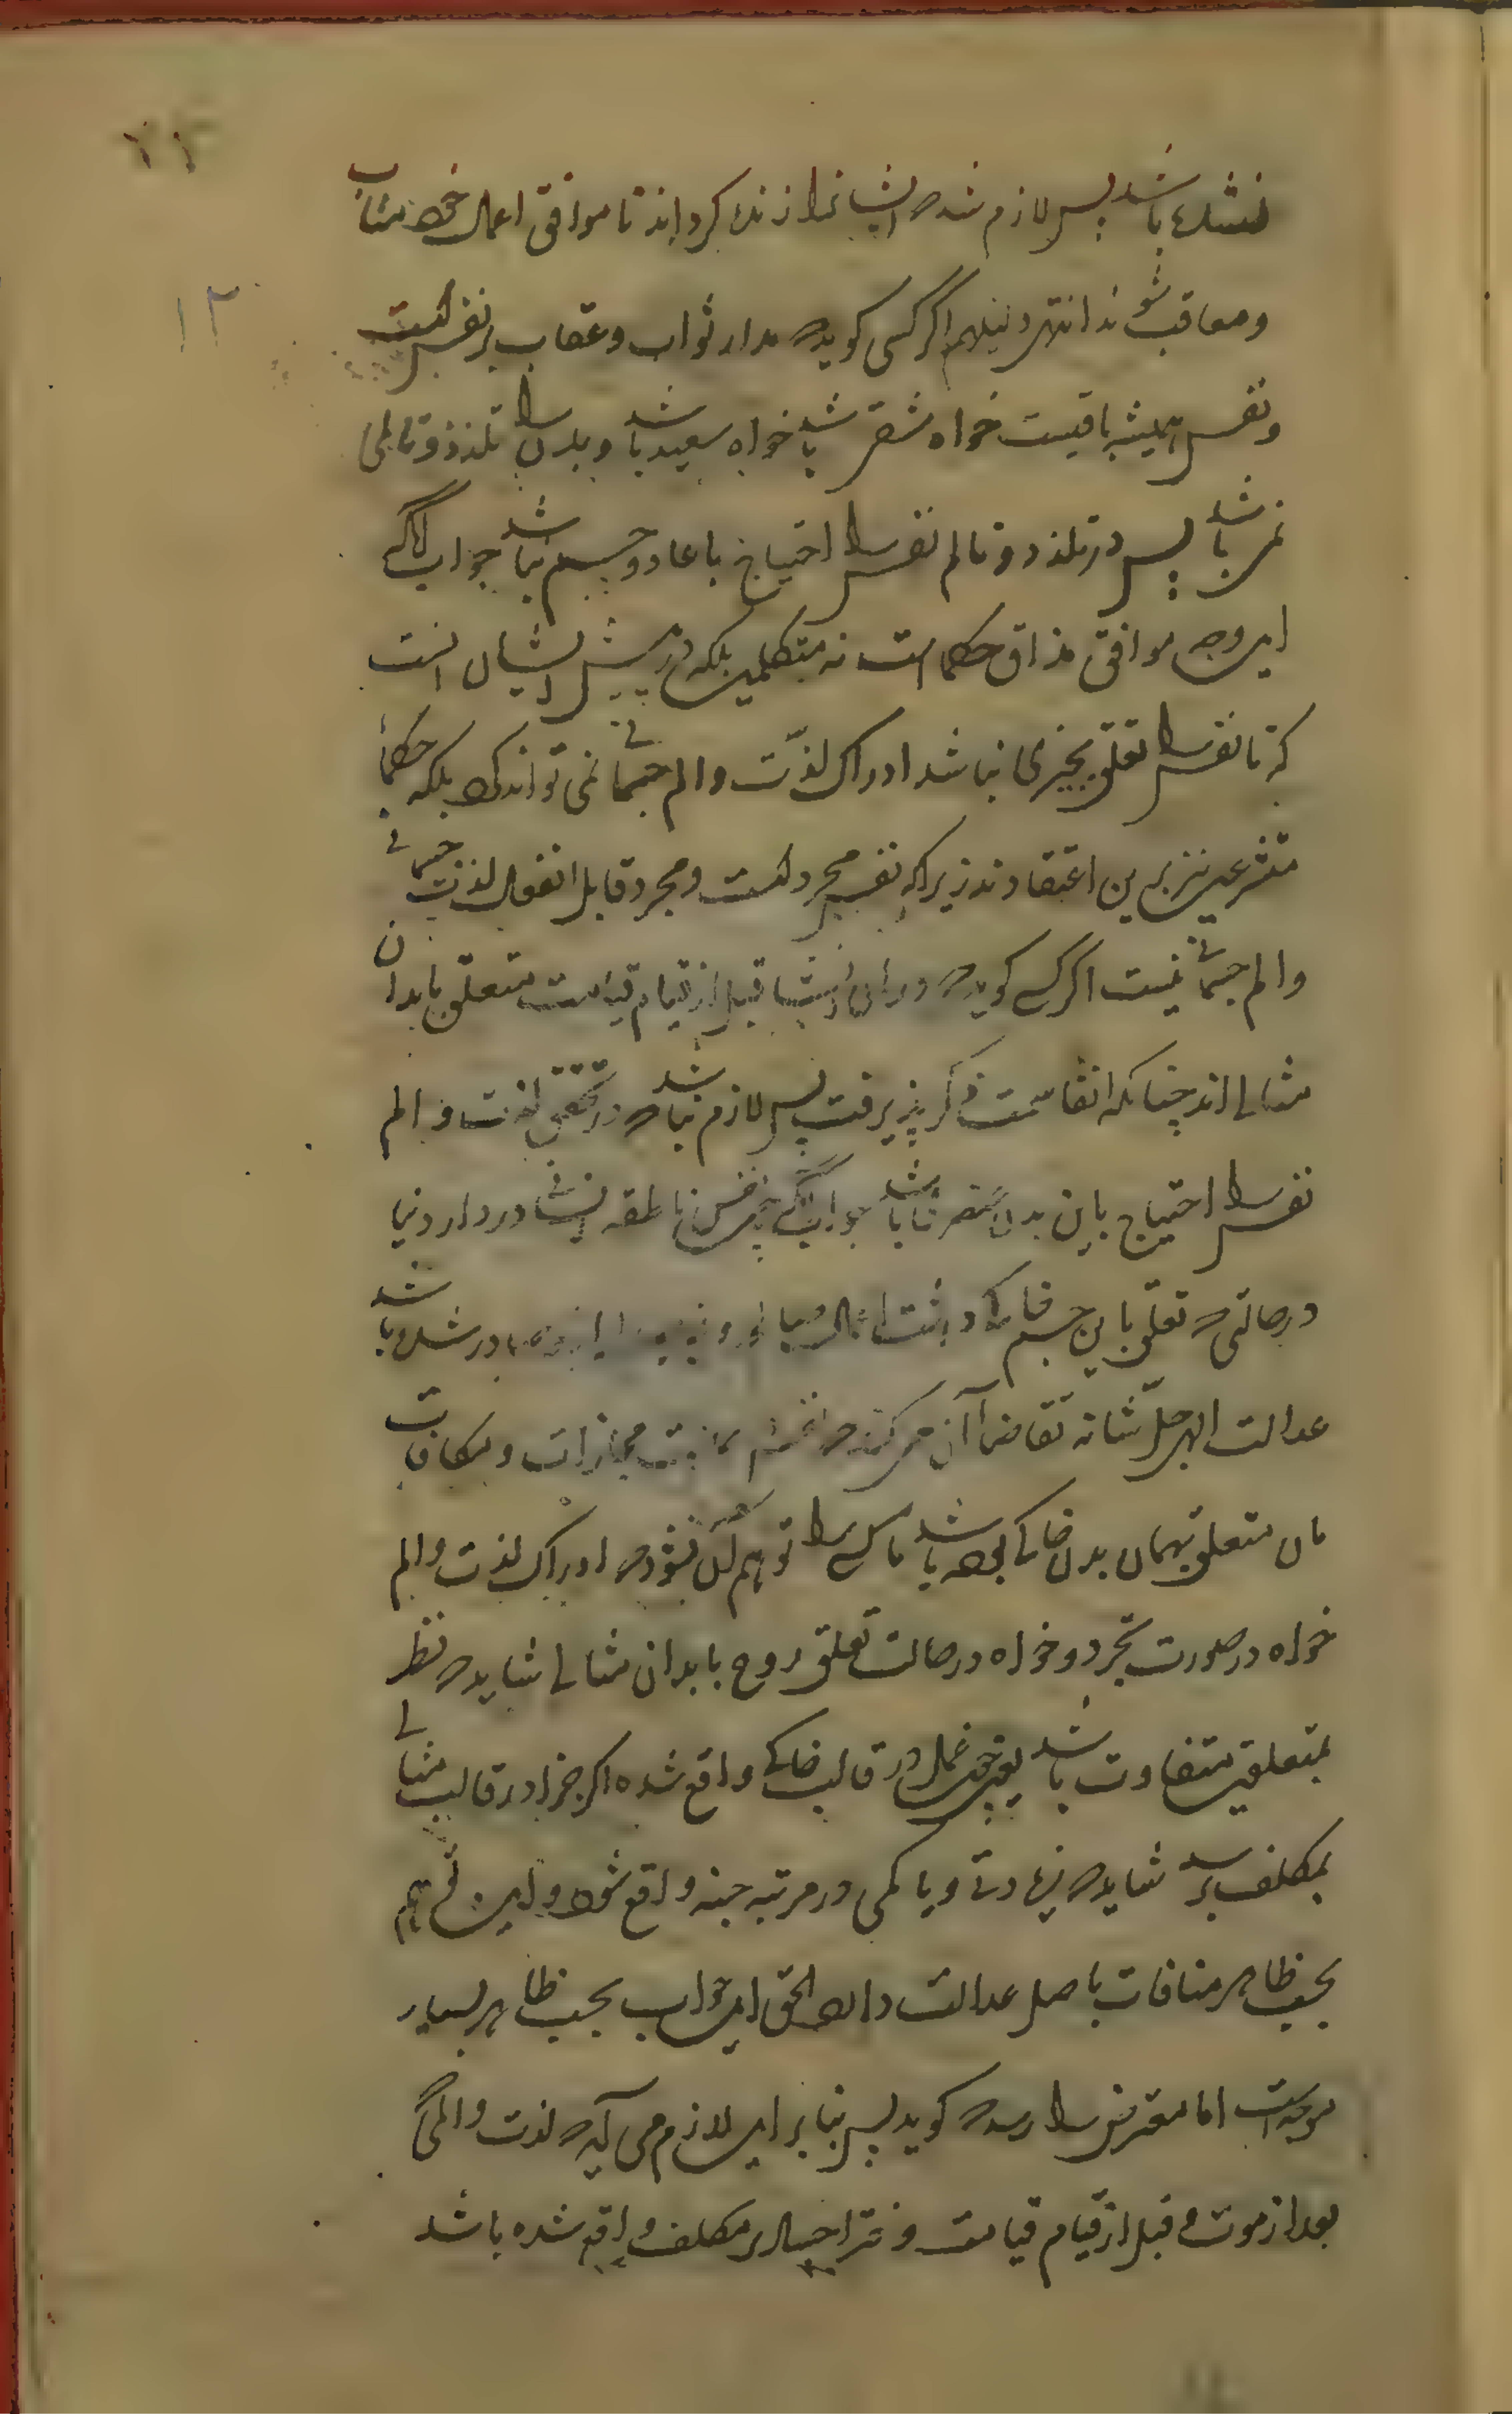 ۱۲
نشده باشد پس لازم شد که ایشانرا زنده کرداند تا موافق اعمال خود مثاب
و معاقب شوند انتهی دلیلهم اگر کسی کوید که مدار ثواب و عقاب بر نفس است
و نفس همیشه باقیست خواه شقی باشد خواه سعید باشد و بدن را تلذذ و تالمی
نمی باشد پس در تلذذ و تالم نفس را احتیاج باعاده جسم نباشد جواب آنکه
این وجه موافق مذاق حکما است نه متکلمین بلکه در پیش ایشان انست
که تا نفس را تعلق بچیزی نباشد ادراک لذّت و الم جسمانی نمی تواند کرد بلکه حکما
متشرعین نیز برین اعتقادند زیرا که نفس مجرد است و مجرد قابل انفعال لذت جسمانی
و الم جسمانی نیست اگر کسی کوید که ارواح قبل از قیام قیامت متعلق بابدان
مثالی اند چنانکه انفا سمت ذکر پذیرفت پس لازم نباشد که در تحقق لذت و الم
نفس را احتیاج باین بدن عنصری باشد جواب آنکه چون نفس ناطقه انسانی در دار دنیا
در حالتی که تعلق باین جسم خاکی داشت اعمال در شده باشد
عدالت الهی جلّ شانه تقاضا آن می کند که مجازات و مکافات
آن متعلق بهمان بدن خاکی بوده باشد تا کسی را توهم آن نشود که ادراک لذت و الم
خواه در صورت تجرد و خواه در حالت تعلق روح بابدان مثالی شاید که نظر
بمتعلقین متفاوت باشد یعنی چون عمل در قالب خاکی واقع شده اگر جزا در قالب مثالی
بمکلف رسد شاید که زیادتی و یا کمی در مرتبه جنبه واقع شود و این توهم
بحسب ظاهر منافات باصل عدالت دارد الحق این جواب بحسب ظاهر بسیار
موجه است اما معترض را رسد که کوید پس بنابر این لازم می آید که لذت و المی که
بعد از موت و قبل از قیام قیامت و نشر اجساد بر مکلف واقع شده باشد